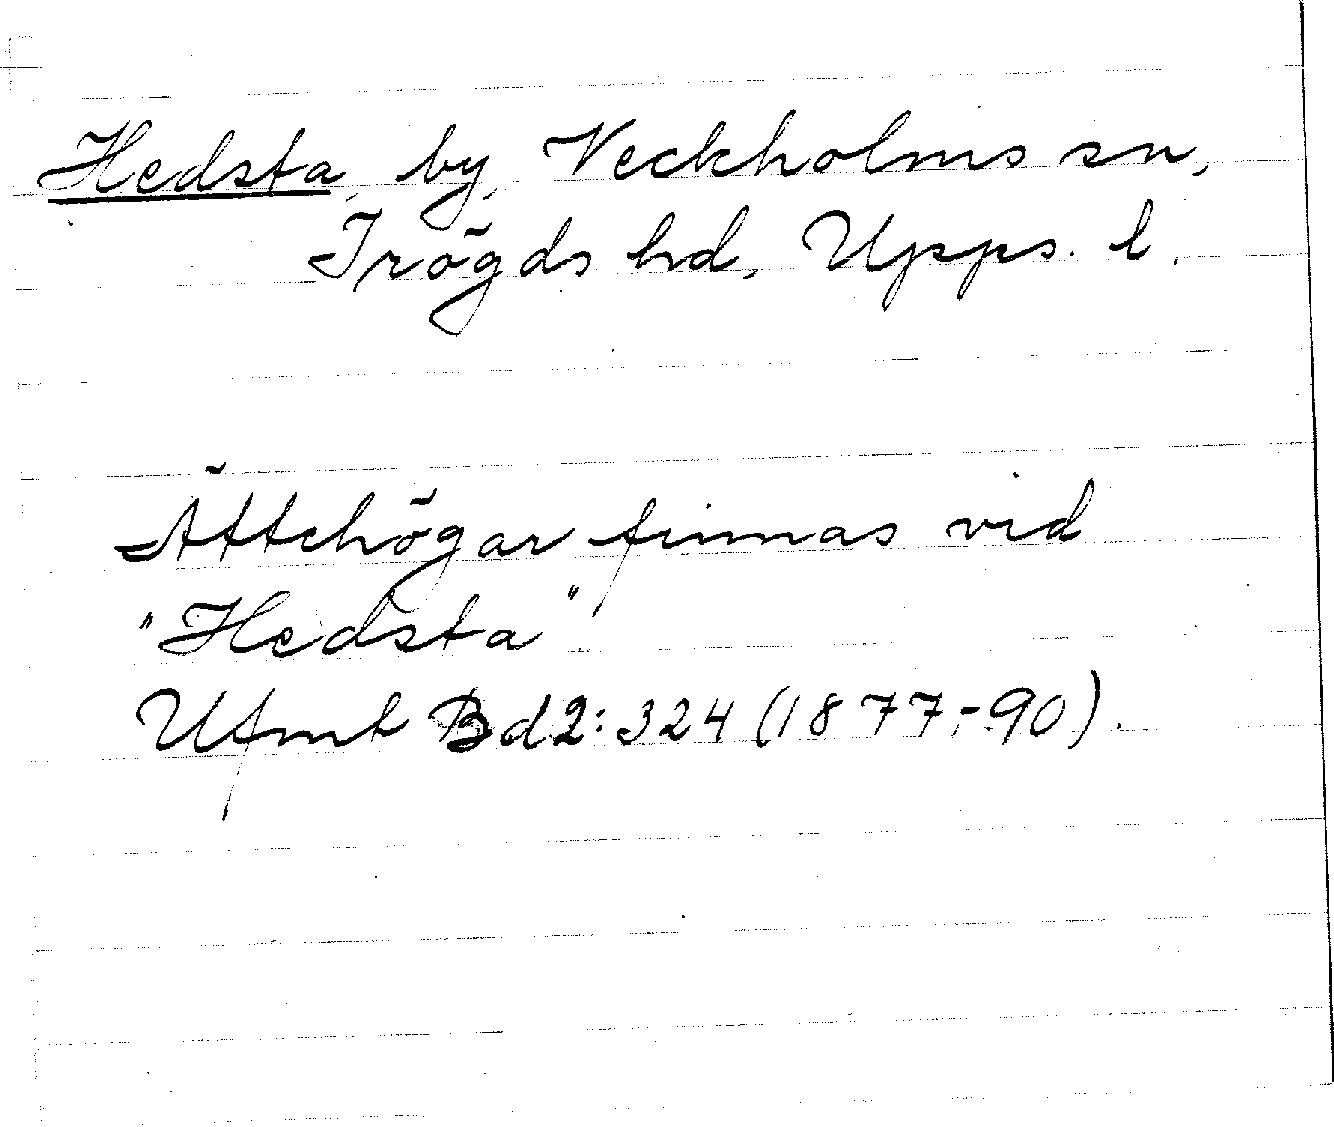 Hedsta, by, Veckholms sn,
Trögds hd, Upps. l.
Ättehögar finnas vid
"Hedsta"
Ufmt Bd2:324 (1877-90).